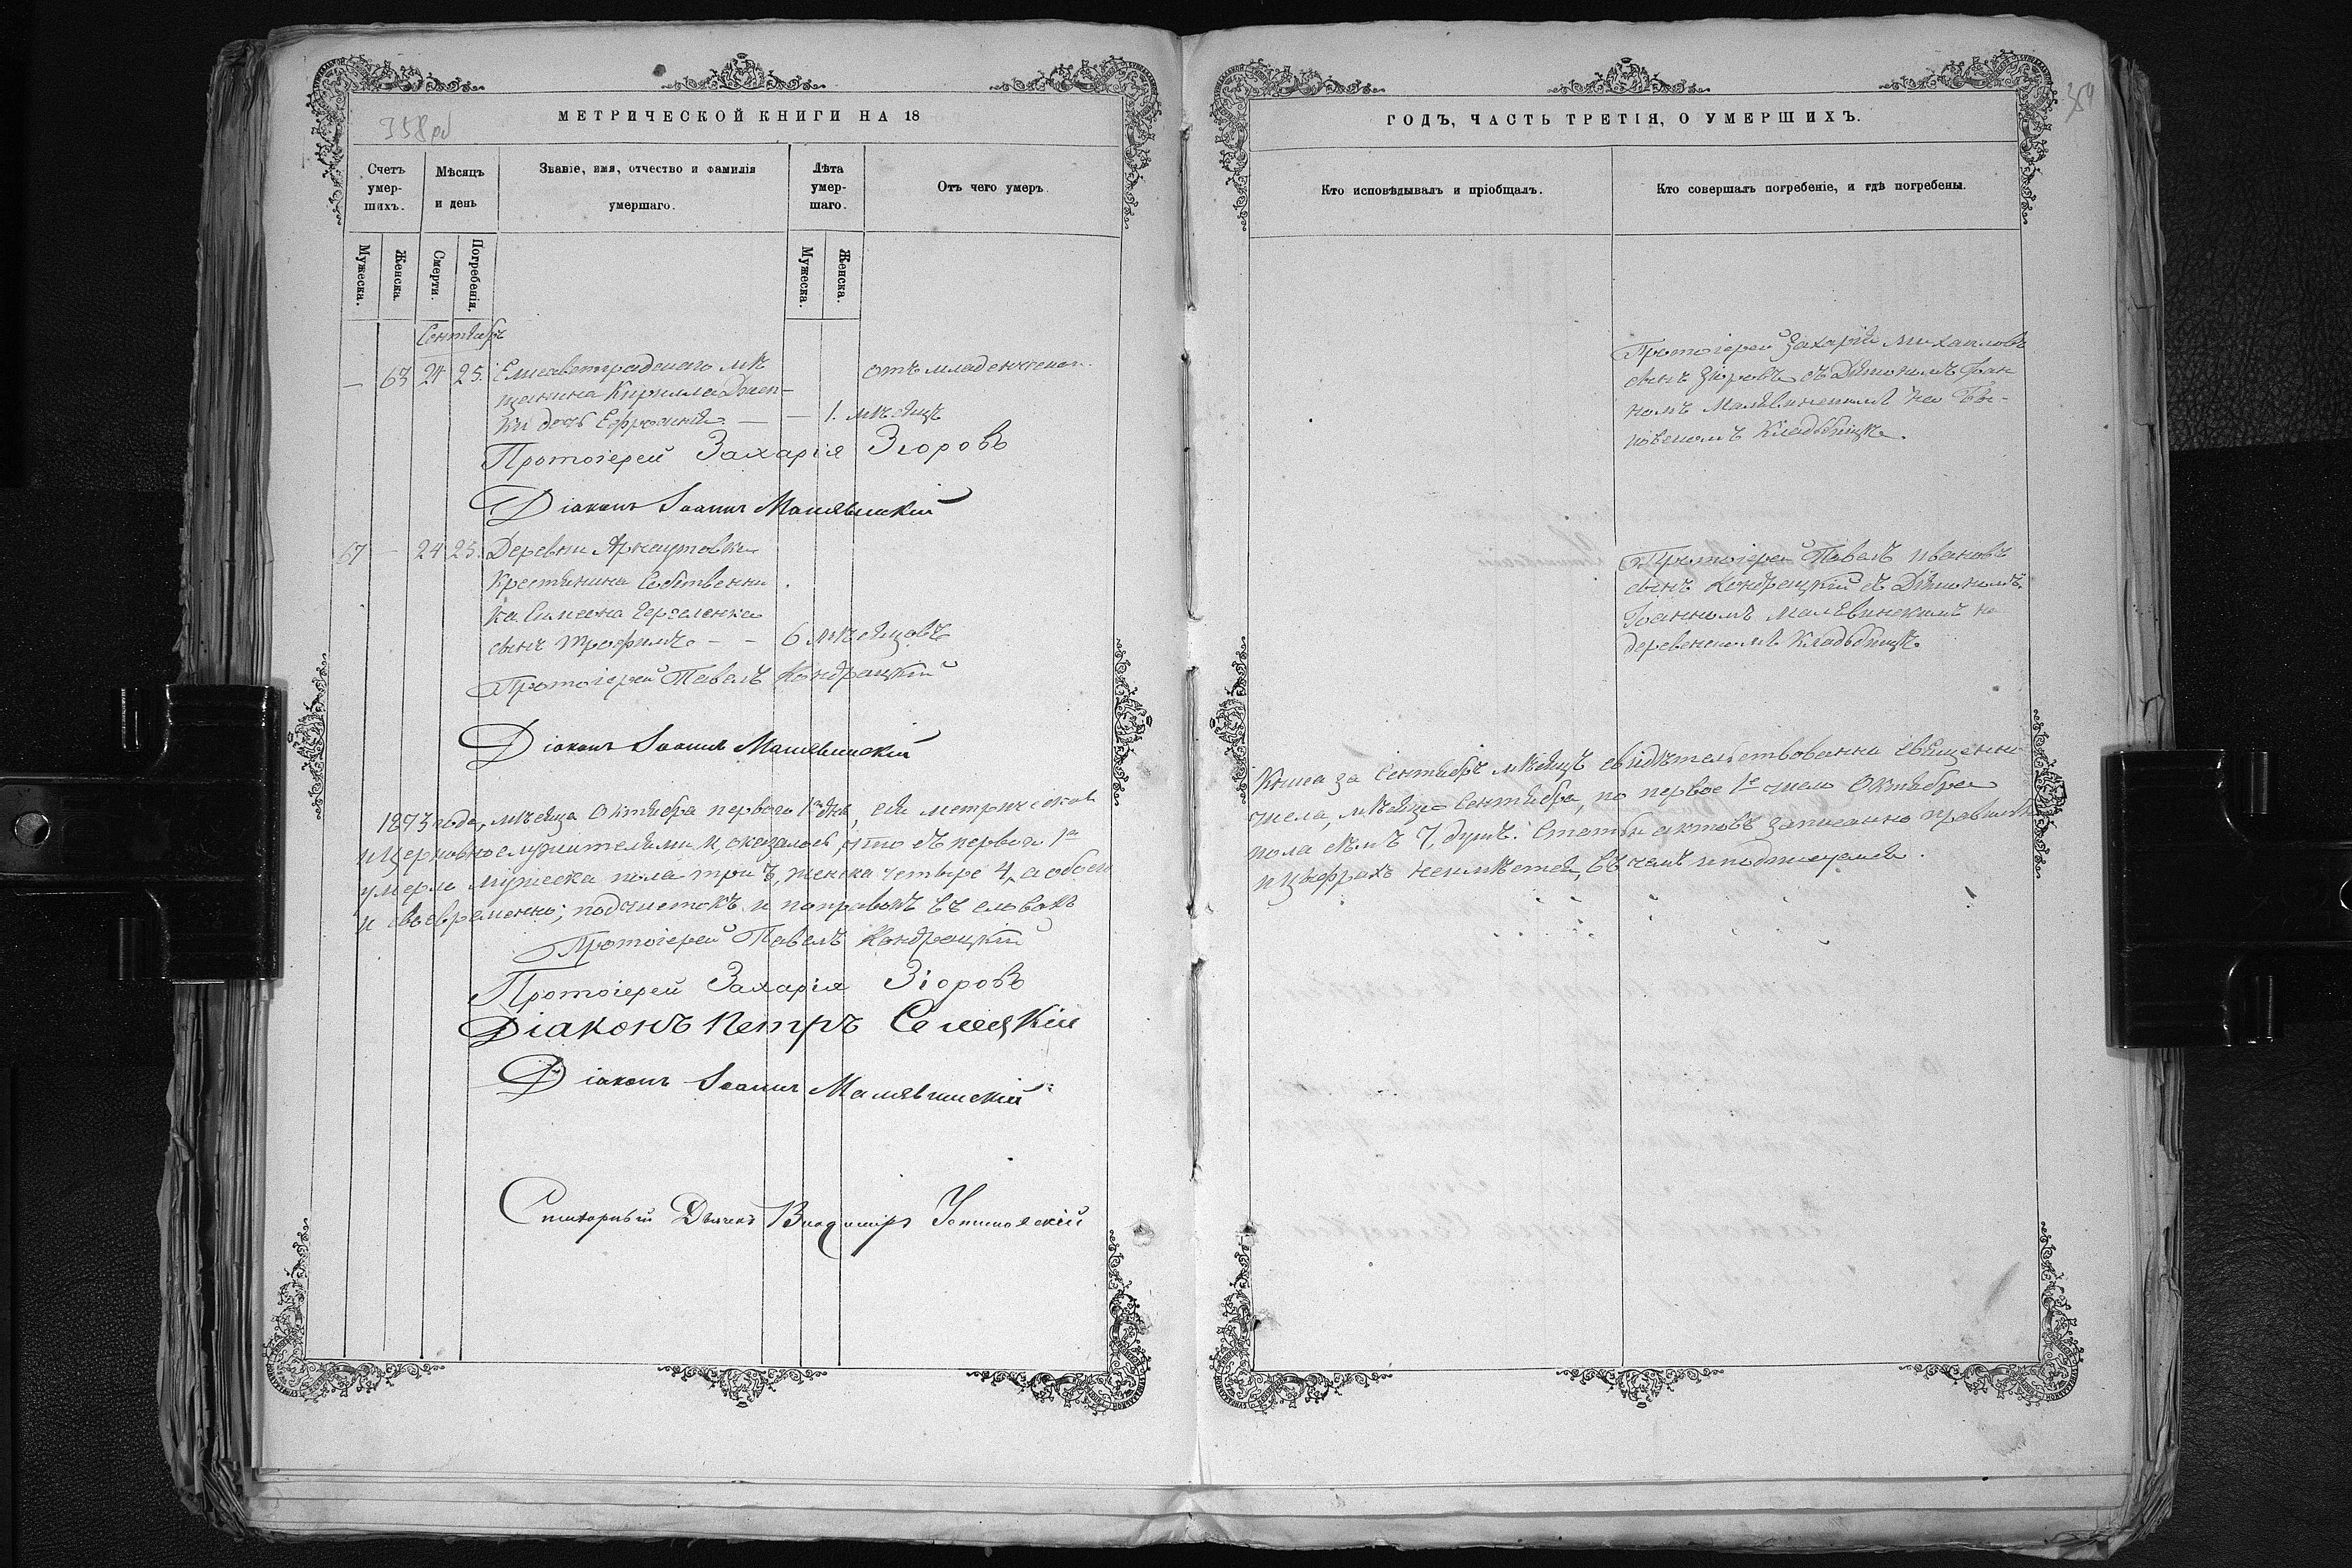 358 об
МЕТРИЧЕСКОЙ КНИГИ НА 18
Счетъ умер-шихъ.
Мѣсяцъ и день
Званіе, имя, отчество и фамилія умершаго.
Лѣта умер-шаго.
Отъ чего умеръ.
Мужеска.
Женска.
Смерти.
Погребенія.
Мужеска.
Женска.
Сентябрь
— 63 24 25. Елисаветградскаго мѣ отъ младенческой.
щанина Кирилла
ки дочь Ефросинія. — — 1. мѣсяцъ
Протоіерей Захарія Зіоровъ
Діаконъ Іоаннъ Малявинскій
67 — 24 25. Деревни Арнаутовки
Крестьянина Собственни
ка Симеона
сынъ Трофимъ. — — 6 мѣсяцовъ
Протоіерей Павелъ Кондрацкій
Діаконъ Іоаннъ Малявинскій
1873 года, мѣсяца Октября перваго 1го дня, сія метрическая
и Церковнослужителями и оказалось, что съ перваго 1го
умерло мужеска пола три 3, женска четыре 4, а обоего
и своевременно; подчистокъ и поправокъ въ словахъ
Протоіерей Павелъ Кондрацкій
Протоіерей Захарія Зіоровъ
Діаконъ Петръ Селецкій
Діаконъ Іоаннъ Малявинскій
Дьячекъ Владиміръ
ГОДЪ, ЧАСТЬ ТРЕТІЯ, О УМЕРШИХЪ.
Кто исповѣдывалъ и пріобщалъ.
Кто совершалъ погребеніе, и гдѣ погребены.
Протоіерей Захарія Михаиловъ
сынъ Зіоровъ съ Діакономъ Іоан
номъ Малявинскимъ на
Кладбищѣ.
Протоіерей Павелъ Ивановъ
сынъ Кондрацкій съ Діакономъ
Іоанномъ Малявинскимъ на
деревенскомъ Кладбищѣ.
Книга за Сентябрь мѣсяцъ свидѣтельствованна священно
числа, мѣсяца Сентября, по первое 1е число Октября
пола семь 7, душъ. Статьи актовъ записанно правильно
и цыфрахъ неимѣется, въ чемъ и подписуемся.